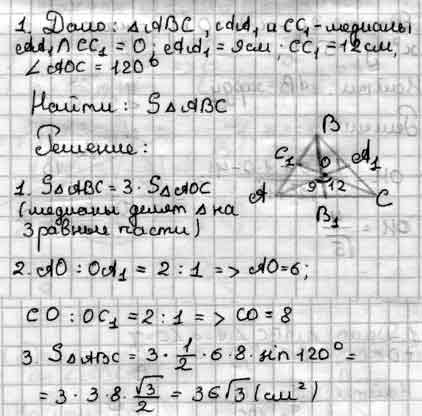 1. Дано: △ABC, AA₁ и CC₁-медианы
AA₁ ∩ CC₁ = O; AA₁ = 9см; CC₁ = 12см,
∠AOC = 120°
Найти: S△ABC
Решение:
B
C₁ O A₁
9 12
A C
B₁
1. S△ABC = 3 · S△AOC
(медианы делят △ на
3 равные части)
2. AO : OA₁ = 2 : 1 => AO=6;
CO : OC₁ = 2 : 1 => CO = 8
3. S△ABC = 3 · 1/2 · 6 · 8 · sin 120° =
= 3 · 3 · 8 · √3/2 = 36√3 (см²)